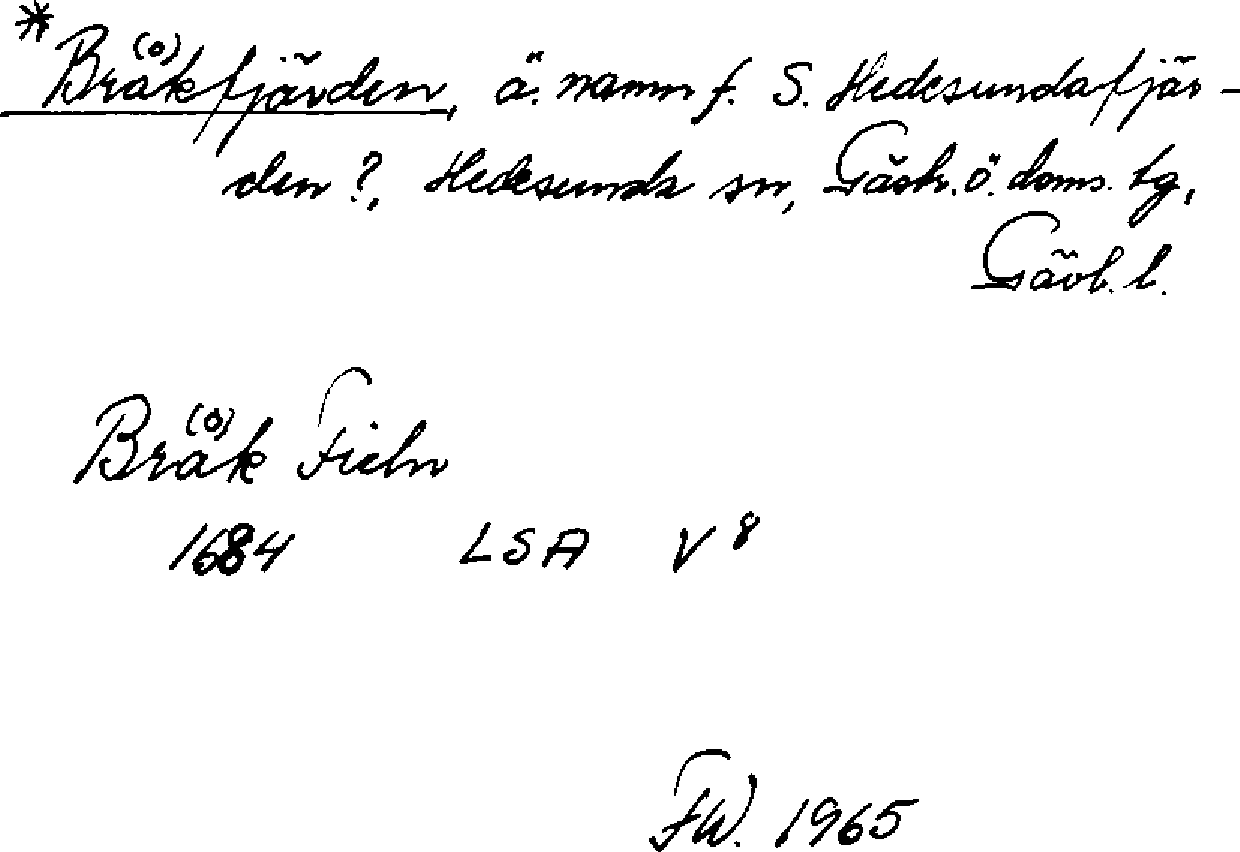 *Brå(o)kfjärden, ä. namn f. S. Hedesundafjär-
den?, Hedesunda sn, Gästr. ö. doms. tg,
Gävl. l.
Brå(o)k Fieln
1684 LSA V 8
FW. 1965